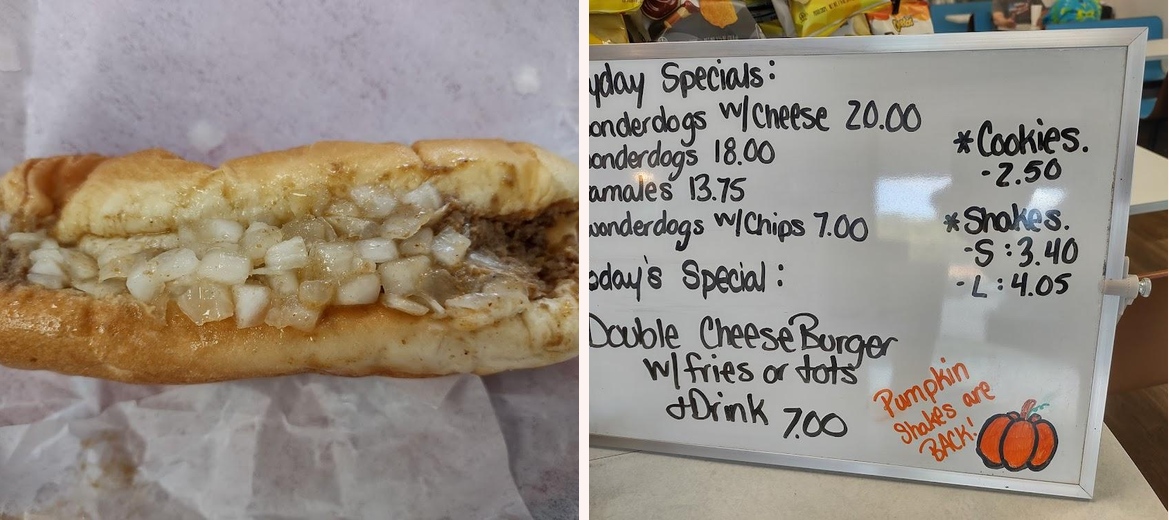 yday Specials:
onderdogs w/Cheese 20.00
onderdogs 18.00
amales 13.75
wonderdogs w/Chips 7.00
oday's Special:
Double CheeseBurger
w/fries or tots
+Drink 7.00
*Cookies.
-2.50
*Shakes.
-S:3.40
-L:4.05
Pumpkin
shakes are
BACK!